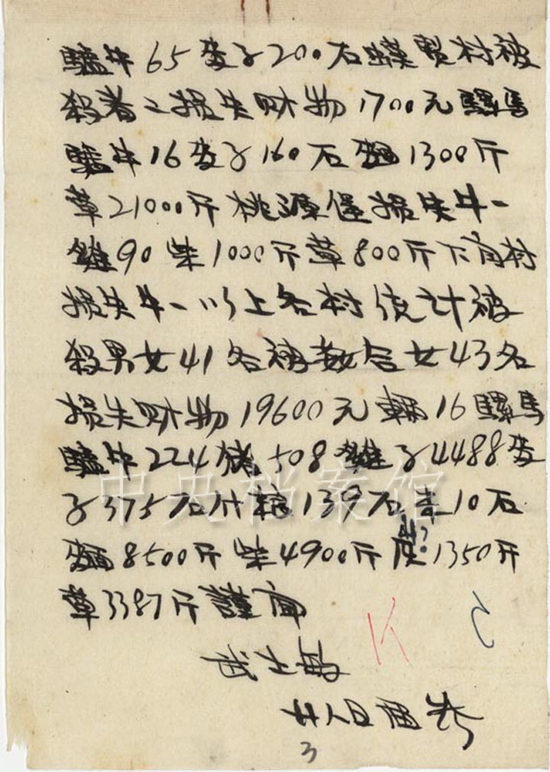 驢牛65麥子200石蟆賢村被
殺者二损失财物1700元騾馬
驢牛16麥子160石麵1300斤
草21000斤桃源堡损失牛一
雞90柴1000斤草800斤下角村
损失牛一以上各村统计被
殺男女41名被姦女43名
损失财物19600元輛16騾馬
驢牛224猪508雞子4488麥
子375石什粮139石米10石
麵8500斤柴4900斤 1350斤
草3387斤謹
武士敏
廿八日
中央档案馆
K
3